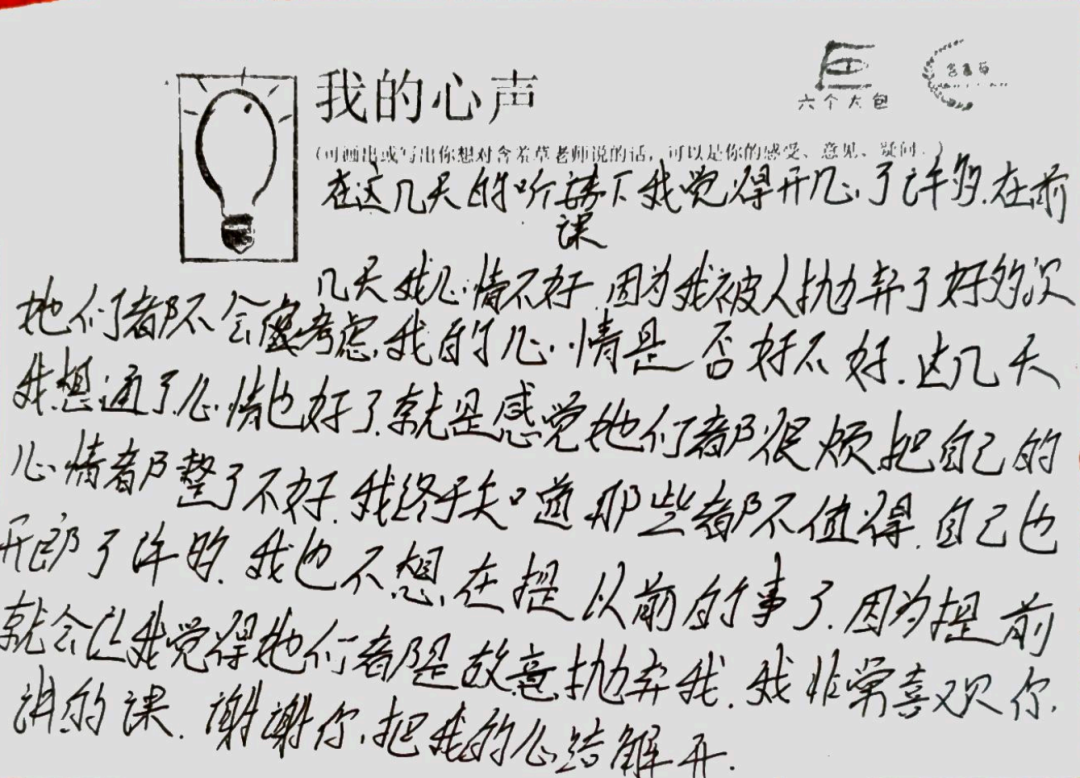 我的心声
六个大包
含羞草
(可画出或写出你想对含羞草老师说的话，可以是你的感受、意见、疑问。)
在这几天的听课下我觉得开心了许多.在前
几天我心情不好.因为我被人抛弃了好多次
她们都不会考虑.我的心情是否好不好.这几天
我想通了心情也好了.就是感觉她们都很烦把自己的
心情都整了不好.我终于知道那些都不值得.自己也
开郎了许多.我也不想.在提以前的事了.因为提前
就会让我觉得她们都是故意抛弃我.我非常喜欢你.
讲的课.谢谢你.把我的心结解开.